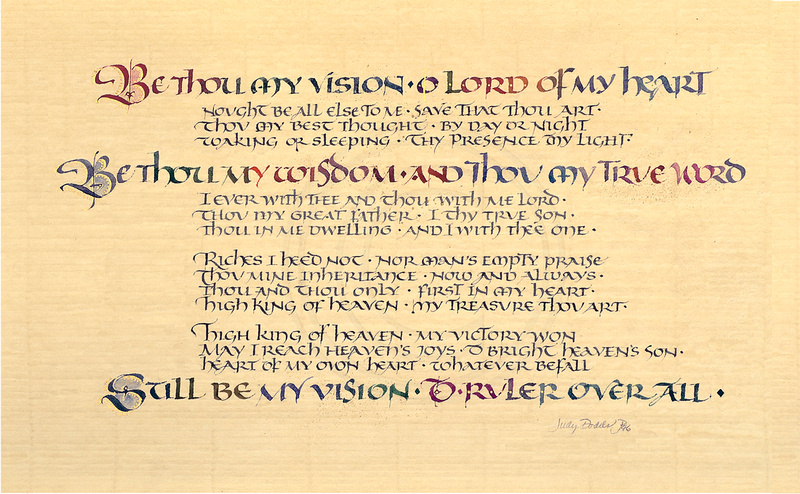 Be thou my vision · O Lord of my heart
Nought be all else to me · save that thou art ·
Thou my best thought · by day or night
Waking or sleeping · thy presence my light ·
Be thou my wisdom · and thou my true word
I ever with thee and thou with me Lord ·
Thou my great Father · I thy true son ·
Thou in me dwelling · and I with thee one ·
Riches I heed not · nor man's empty praise
Thou mine inheritance · now and always ·
Thou and thou only · first in my heart ·
High king of heaven · my treasure thou art ·
High king of heaven · my victory won
May I reach heaven's joys · O bright heaven's son ·
Heart of my own heart · whatever befall
Still be my vision · O · ruler over all ·
Judy Dodds